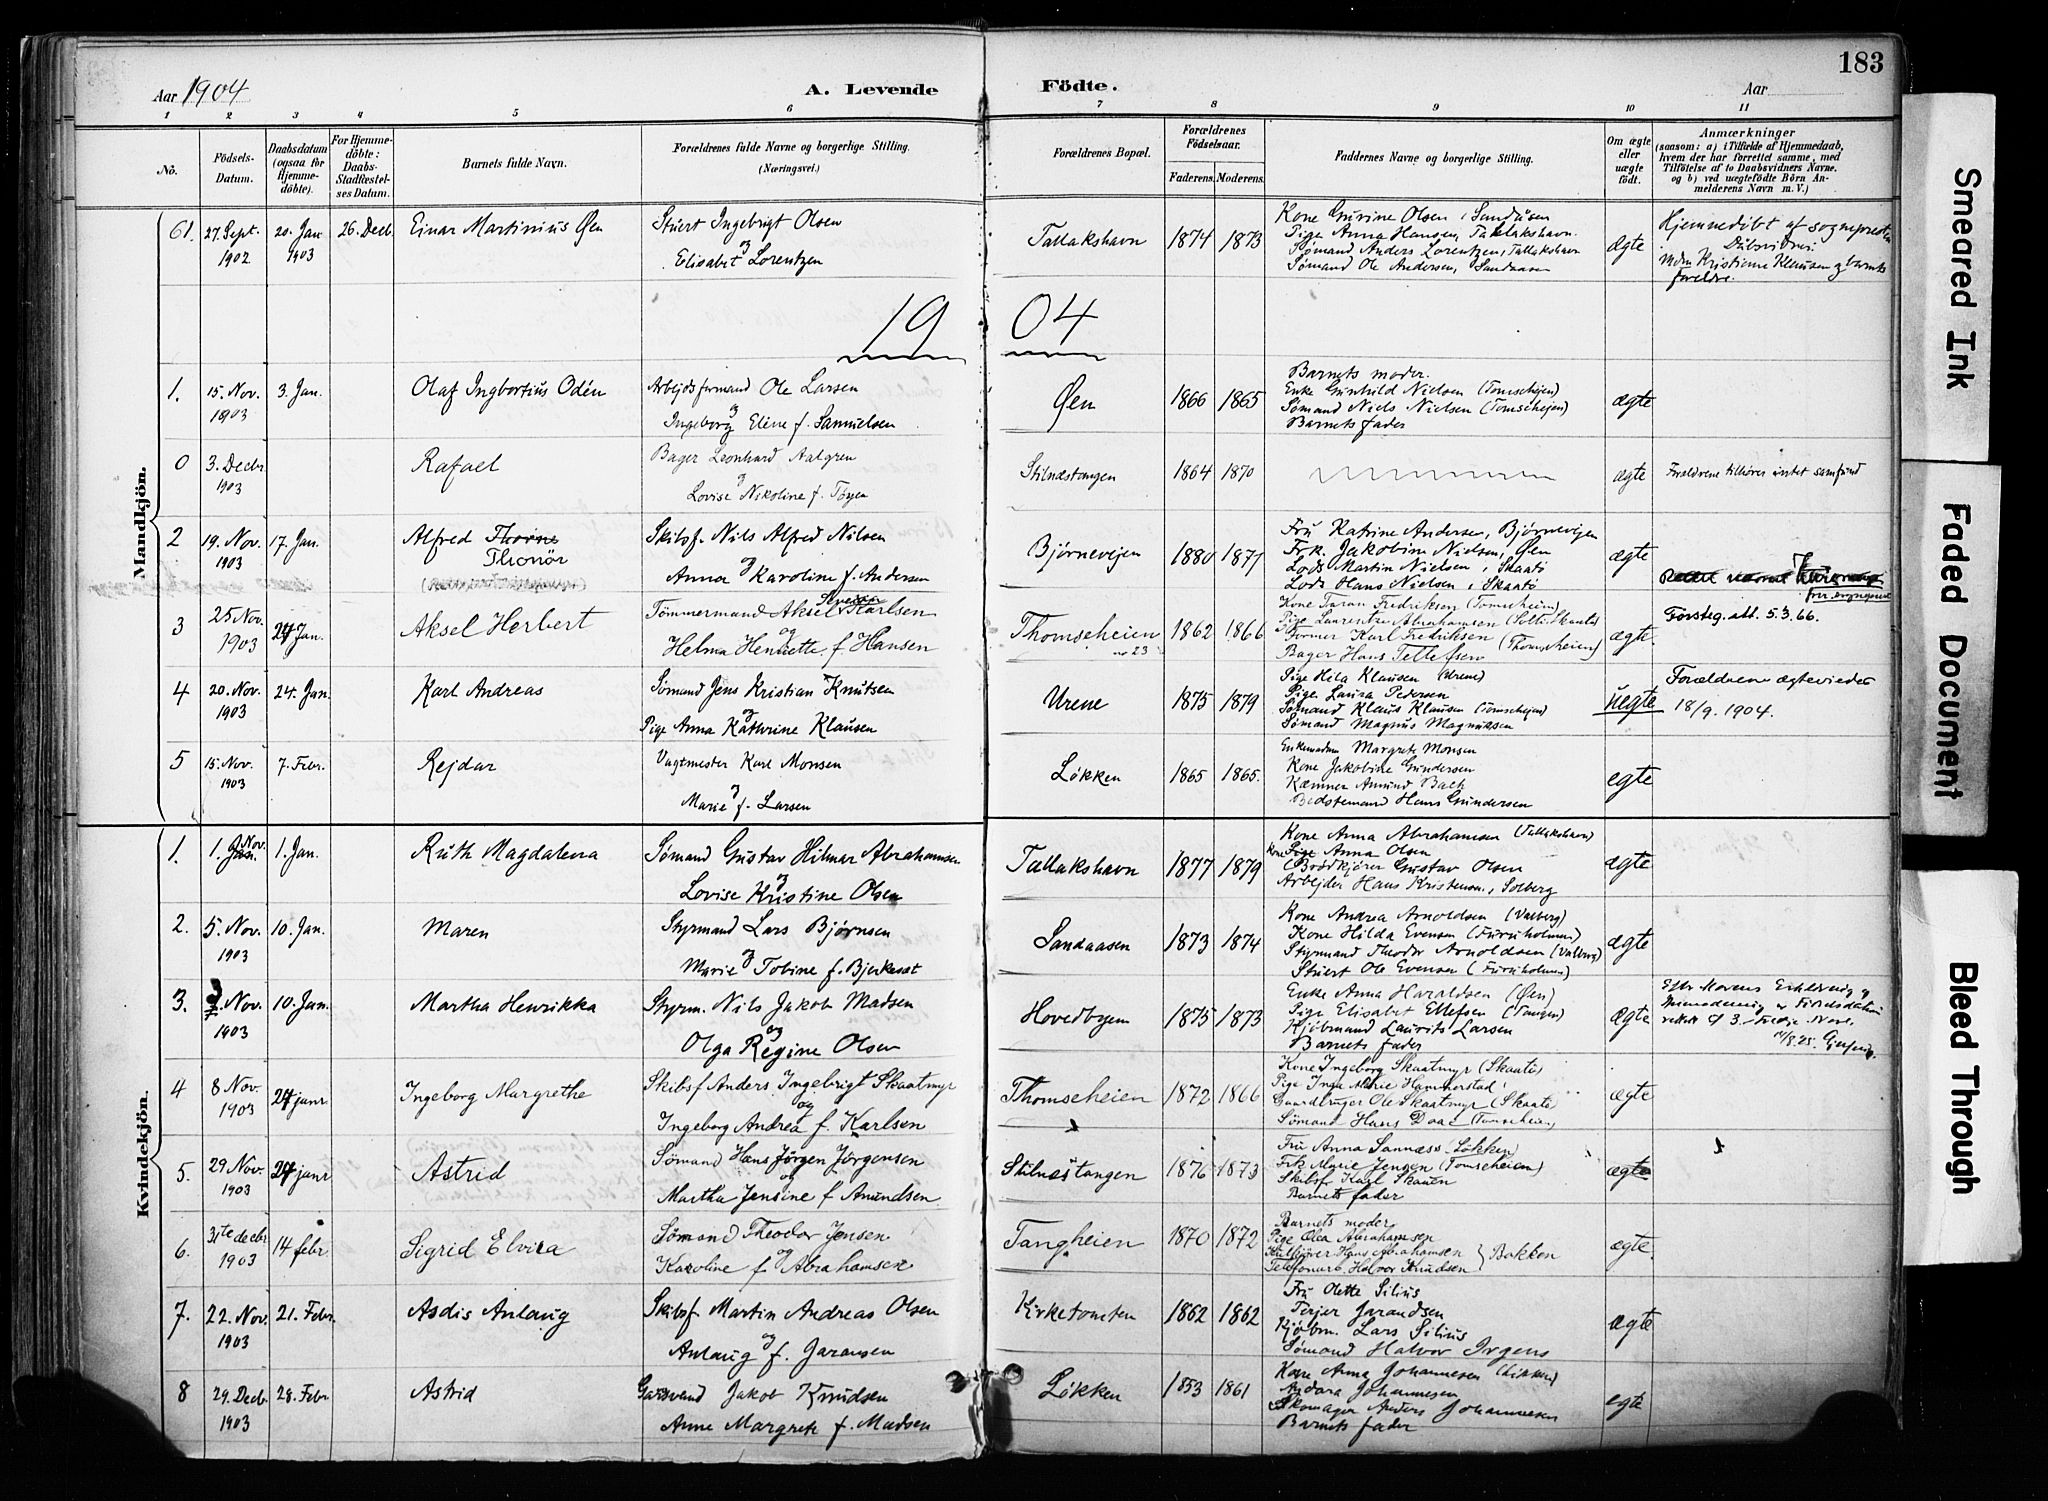 183
Aar 1904
A. Levende
Födte.
Aar
1 2 3 4 5 6 7 8 9 10 11
No.
Födsels-Datum.
Daabsdatum (ogsaa för Hjemme-döbte).
For Hjemme-döbte: Daabs-Stadfæstel-ses Datum.
Barnets fulde Navn.
Forældrenes fulde Navne og borgerlige Stilling.
(Næringsvei.)
Forældrenes Bopæl.
Forældrenes Födselsaar.
Faderens. Moderens.
Faddernes Navne og borgerlige Stilling.
Om ægte eller uægte födt.
Anmærkninger
(saasom: a) i Tilfælde af Hjemmedaab, hvem der har forrettet samme, med Tilföielse af to Daabsvidners Navne, og b) ved uægtefödte Börn An-melderens Navn m. V.)
Mandkjön.
61. 27. Sept. 1902 20. Jan 1903 26. Decb. Einar Martinius Øen
Stuert Ingebrigt Olsen
og
Elisabet Lorentzen
Tallakshavn 1874 1873
Kone Gurine Olsen, Sandåsen
Pige Anna Hansen, Tallakshavn.
Sømand Anders Lorentzen, Tallakshavn
Sømand Ole Andersen, Sandaasen
ægte
Hjemmedöbt af sognepresten
Kristiane Klausen og barnets
foreldre.
19 04
1. 15. Nov. 1903 3. Jan. Olaf Ingbortius Odén
Arbejdsformand Ole Larsen
og
Ingeborg Eline f. Samuelsen
Øen 1866 1865
Barnets moder.
Enke Gunhild Nielsen (Tomsehejen)
Sømand Niels Nielsen (Tomsehejen)
Barnets fader
ægte
0 3. Decbr 1903 Rafael
Bager Leonhard Aalgren
og
Lovise Nikoline f. Tøgen
Stilnæstangen 1864 1870
ægte
Forældrene tilhører intet samfund
2 19. Nov. 1903 17. Jan. Alfred Thorne
Thonör
Skibsf. Nils Alfred Nilsen
og
Anna Karoline f. Andersen
Bjørnevejen 1880 1877
Fru Katrine Andersen, Bjørnevejen
Frk. Jakobine Nielsen, Øen
Lods Martin Nielsen, Skaatö
Lods Hans Nielsen, Skaatö
ægte
3 25 Nov. 1903 24 Jan. Aksel Herbert
Tömmermand Aksel Severin Karlsen
og
Helma Henriette f. Hansen
Thomseheien no 23 1862 1866
Kone Taran Fredriksen (Tomseheim)
Pige Laurentze Abrahamsen
Former Karl Fredriksen (Thomseheien)
Bager Hans Tellefsen
ægte.
Førsteg. att. 5.3.66.
4 20. Nov. 1903 24. Jan. Karl Andreas
Sømand Jens Kristian Knutsen
og
Pige Anna Kathrine Klausen
Urene 1875 1879
Pige Hila Klausen (Urene)
Pige Laura Pedersen
Sømand Klaus Klausen (Tomsehejen)
Sømand Magnus Magnussen
uegte
Forældrene ægteviedes
18/9. 1904.
5 15. Nov. 1903 7. Febr. Rejdar
Vagtmester Karl Monsen
og
Marie f. Larsen
Løkken 1865 1865.
Enkemadam Margrete Monsen
Kone Jakobine Gundersen
Kæmner Amund Bach
Bedstemand Hans Gundersen
egte
Kvindekjön.
1. 1. Jan. Nov. 1. Jan. Ruth Magdalena
Sømand Gustav Hilmar Abrahamsen
og
Lovise Kristine Olsen
Tallakshavn 1877 1879
Kone Anna Abrahamsen (Tallakshavn)
Kone Pige Anna Olsen
Brødkjører Gustav Olsen
Arbejder Hans Kristensen, Solberg
ægte
2. 5. Nov. 1903 10. Jan. Maren
Styrmand Lars Bjørnsen
og
Marie Tobine f. Bjerkeset
Sandaasen 1873 1874
Kone Andrea Arnoldsen (Valberg)
Kone Hilda Evensen (Furuholmen)
Styrmand Theodor Arnoldsen (Valberg)
Stuert Ole Evensen (Furuholmen)
ægte
3. 3. Nov. 1903 10. Jan. Martha Henrikka
Styrm. Nils Jakob Madsen
og
Olga Regine Olsen
Hovedbyen 1875 1873
Enke Anna Haraldsen (Øen)
Pige Elisabet Ellefsen (Tangen)
Kjöbmand Laurits Larsen
Barnets fader
ægte
4 8 Nov. 1903 24 janr Ingeborg Margrethe
Skibsf Anders Ingebrigt Skaatmyr
og
Ingeborg Andrea f. Karlsen
Thomseheien 1872 1866
Kone Ingeborg Skaatmyr (Skaatö)
Pige Inga Marie Hammerstad
Gaardbruger Ole Skaatmyr (Skaatö)
Sømand Hans Daae (Tomseheien)
ægte
5. 29 Nov. 1903 24 janr Astrid
Sömand Hans Jörgen Jörgensen
og
Martha Jensine f Amundsen
Stilnæstangen 1876 1873
Fru Anna Sannæss (Løkken)
Frk Marie Jensen (Tomseheien)
Skibsf Karl Skauen
Barnets fader
ægte
6. 31te decbr 1903 14 febr. Sigrid Elvira
Sömand Theodor Jensen
og
Karoline f Abrahamsen
Tangheien 1870 1872
Barnets moder
Pige Olea Abrahamsen
Hans Abrahamsen
Halvor Knudsen
} Bakken
ægte
7. 22. Nov. 1903 21. Febr. Asdis Anlaug
Skibsf. Martin Andreas Olsen
og
Anlaug f. Jaransen
Kirketomten 1862 1862
Fru Olette Silius
Terjer Jarandsen
Kjøbm. Lars Silius
Sømand Halvor Irgens
ægte
8 29. Decb. 1903 28. Febr Astrid
Garsvend Jakob Knudsen
Anne Margrete f. Madsen
Løkken 1853 1861
Kone Anna Johannesen (Løkken)
Andora Johannesen
Skomager Anders Johannesen
Barnets fader
egte
Smeared Ink
Faded Document
Bleed Through